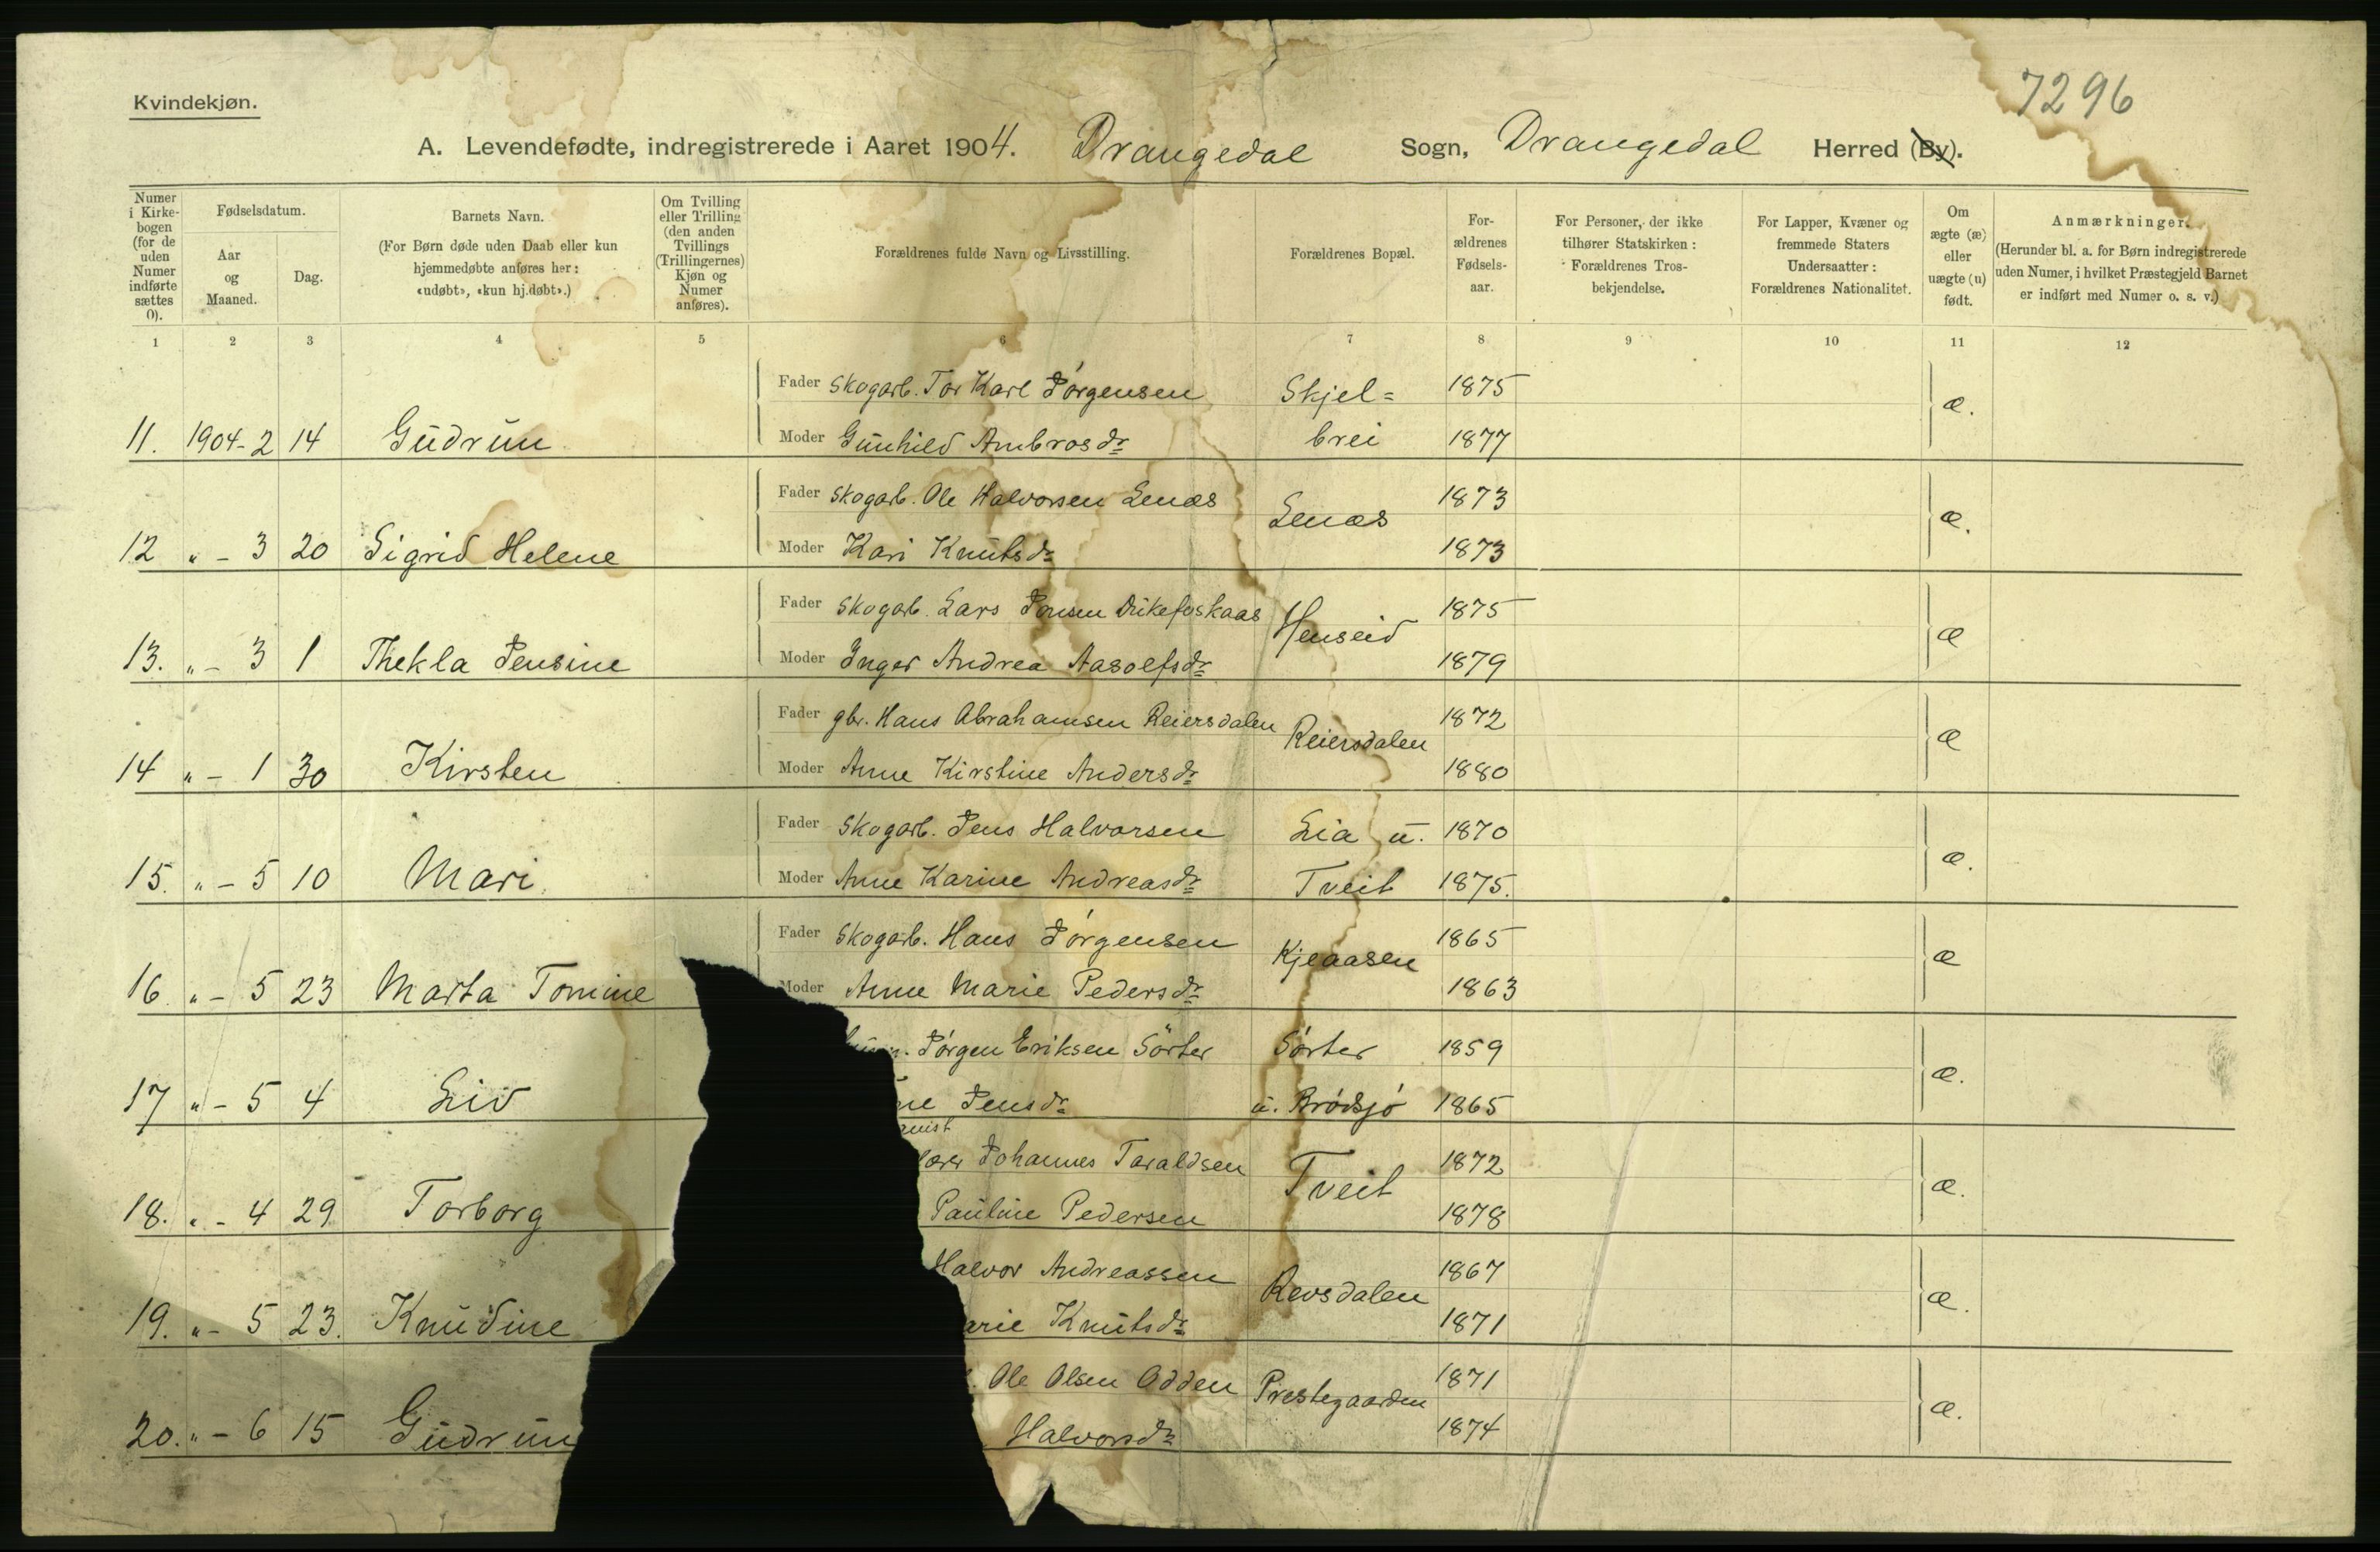 Kvindekjøn.
7296
A. Levendefødte, indregistrerede i Aaret 1904. Drangedal Sogn, Drangedal Herred (By).
Numer i Kirkebogen (for de uden Numer indførte sættes 0).
Fødselsdatum.
Aar og Maaned.
Dag.
Barnets Navn.
(For Børn døde uden Daab eller kun hjemmedøbte anføres her: «udøbt», «kun hj.døbt».)
Om Tvilling eller Trilling (den anden Tvillings (Trillingernes) Kjøn og Numer anføres).
Forældrenes fulde Navn og Livsstilling.
Forældrenes Bopæl.
Forældrenes Fødselsaar.
For Personer, der ikke tilhører Statskirken: Forældrenes Trosbekjendelse.
For Lapper, Kvæner og fremmede Staters Undersaatter: Forældrenes Nationalitet.
Om ægte (æ) eller uægte (u) født.
Anmærkninger.
(Herunder bl. a. for Børn indregistrerede uden Numer, i hvilket Præstegjeld Barnet er indført med Numer o. s. v.)
1 2 3 4 5 6 7 8 9 10 11 12
Fader Skogarb. Tor Karl Jörgensen Skjel= 1875 æ.
11. 1904-2 14 Gudrun Moder Gunhild Ambrosdr brei 1877
Fader Skogarb. Ole Halvorsen Lenæs Lenæs 1873 æ.
12 " - 3 20 Sigrid Helene Moder Kari Knutsdr 1873
Fader Skogarb. Lars Jonsen Henseid 1875 æ
13. " - 3 1 Thekla Jensine Moder Inger Andrea Aasolfsdr 1879
Fader gbr. Hans Abrahamsen Reiersdalen Reiersdalen 1872 æ
14 " - 1 30 Kirsten Moder Anne Kirstine Andersdr 1880
Fader Skogarb. Jens Halvorsen Lia u. 1870 æ.
15. " - 5 10 Mari Moder Anne Karine Andreasdr Tveit 1875.
Fader Skogarb. Hans Jörgensen Kjeaasen 1865 æ
16. " - 5 23 Marta Tomine Moder Anne Marie Pedersdr 1863
Jörgen Eriksen Sörter Sörter 1859 æ.
17 " - 5 4 Liv ne Jensdr u. Brödsjö 1865
anist
lærer Johannes Taraldsen Tveit 1872 æ.
18. " - 4 29 Torborg Pauline Pedersen 1878
Halvor Andreassen Revsdalen 1867 æ.
19. " - 5 23. Knudine arie Knutsdr 1871
Ole Olsen Odden Prestegaarden 1871 æ.
20. " - 6 15 Gudrun Halvorsdr 1874